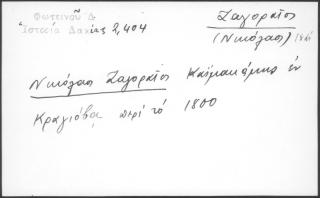 Φωτεινοῦ Δ
Ἱστορία Δακίας 2,404
Ζαγοραῖος
(Νικόλαος)
Νικόλαος Ζαγοραῖος Καϊμακάμης ἐν
Κραγιόβᾳ περὶ τό 1800